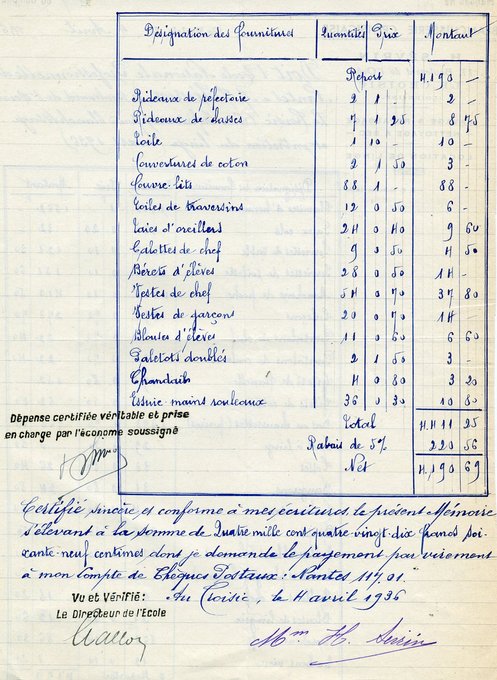 Désignation des Fournitures Quantités Prix Montant
Report 4.190 -
Rideaux de réfectoire 2 1 - 2 -
Rideaux de classes 7 1 25 8 75
Toile 1 10 - 10 -
Couvertures de coton 2 1 50 3 -
Couvre-lits 88 1 - 88 -
Toiles de traversins 12 0 50 6 -
Taies d'oreillers 24 0 40 9 60
Calottes de chef 9 0 50 4 50
Bérets d'élèves 28 0 50 14 -
Vestes de chef 54 0 70 37 80
Vestes de garçons 20 0 70 14 -
Blouses d'élèves 11 0 60 6 60
Paletots doublés 2 1 50 3 -
Chandails 4 0 80 3 20
Essuie-mains rouleaux 36 0 30 10 80
Total 4.411 25
Rabais de 5% 220 56
Net 4.190 69
Dépense certifiée véritable et prise
en charge par l'économe soussigné
Certifié sincère et conforme à mes écritures, le présent Mémoire
s'élevant à la somme de Quatre mille cent quatre-vingt-dix francs soi-
xante-neuf centimes dont je demande le payement par virement
à mon Compte de Chèques Postaux: Nantes
Au Croisic, le 4 avril 1936
Vu et Vérifié:
Le Directeur de l'Ecole
Mme H.